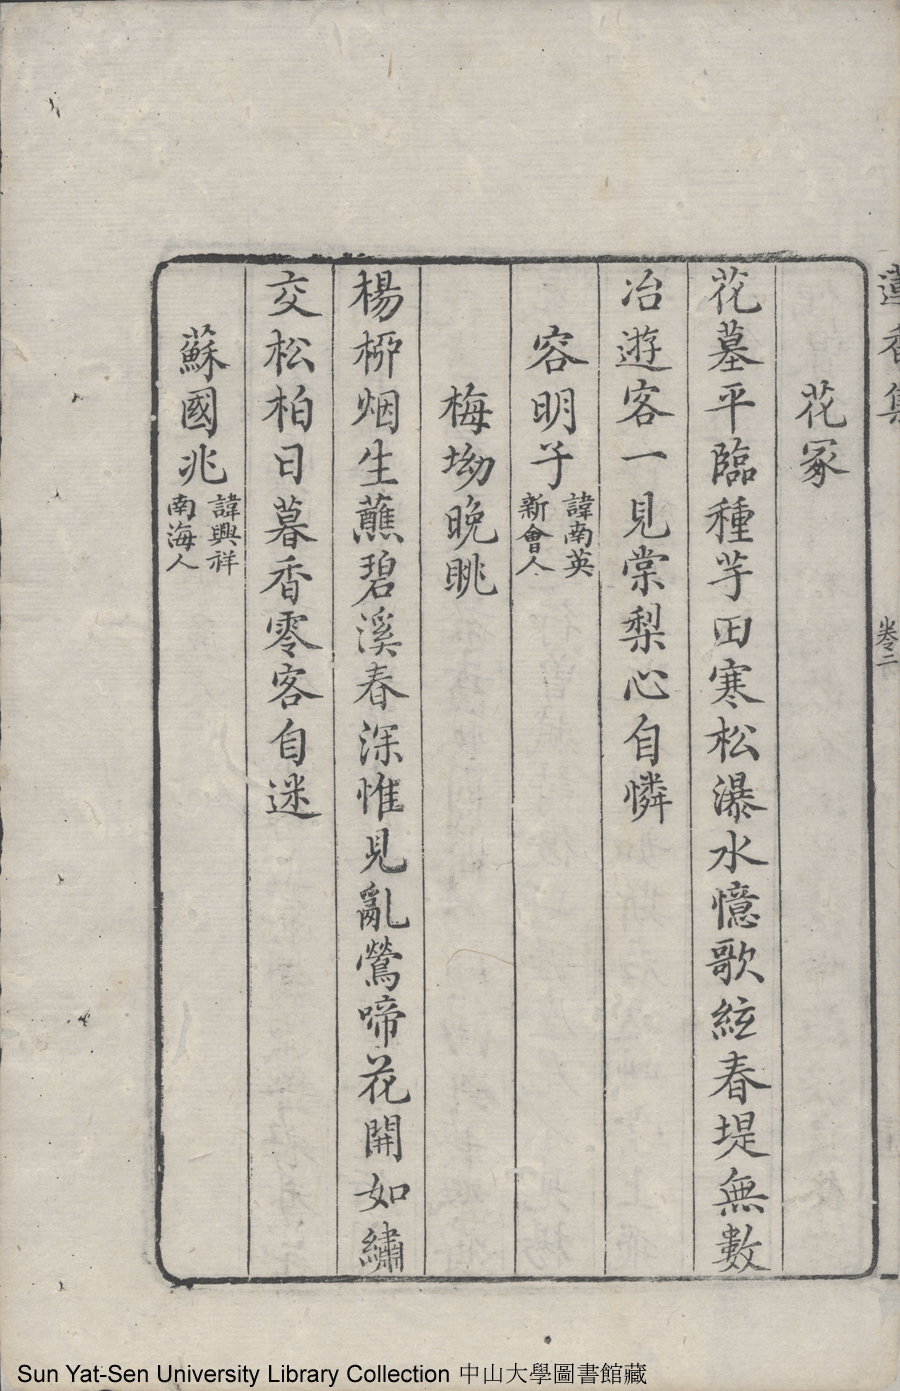 蓮香集
卷二
花冢
花墓平臨種芋田寒松瀑水憶歌絃春堤無數
冶遊客一見棠梨心自憐
容明子 諱南英 新會人
梅坳晚眺
楊桺烟生蘸碧溪春深惟見亂鶯啼花開如繡
交松柏日暮香零客自迷
蘇國兆 諱興祥 南海人
Sun Yat-Sen University Library Collection 中山大學圖書館藏